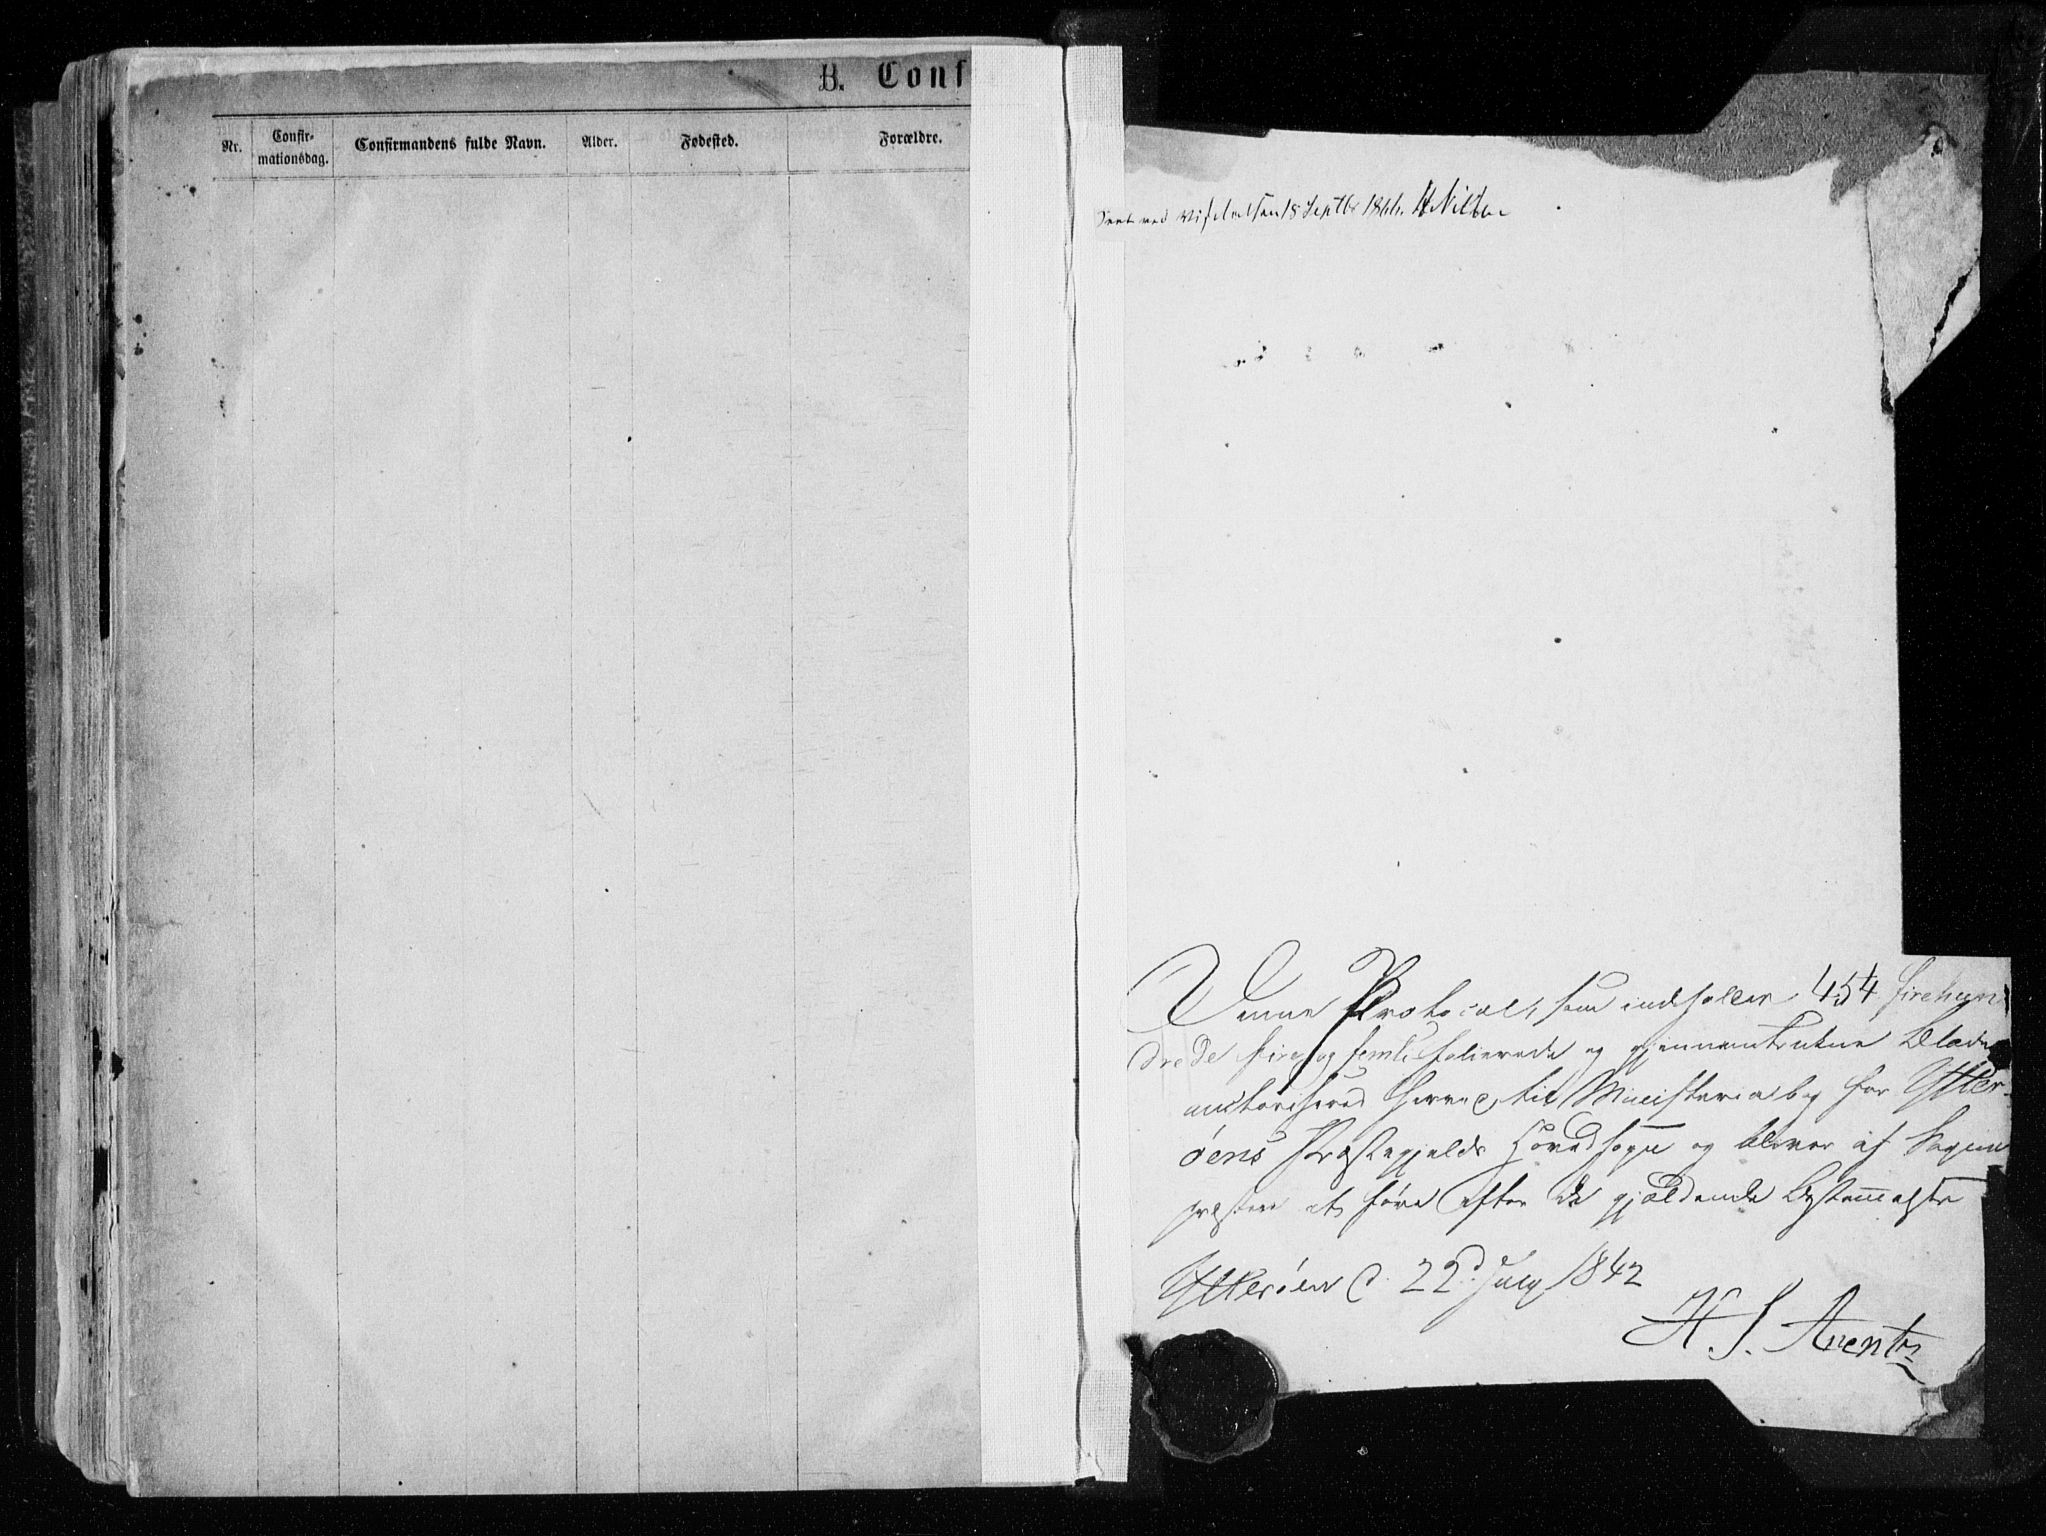 B. Conf
Nr.
Confir-
mationsdag.
Confirmandens fulde Navn.
Alder.
Fødested.
Forældre.
Seet ved Visitatsen 18 Septbr 1866.
Denne Protocol, som indholler 454 firehun
drede fire og femti folierede og gjennemtrukne Blade
auctoriseres herved til Ministerialbog for Ytter-
øens Præstegjelds Hovedsogn og bliver af Sogne
præsten at føre efter de gjældende Bestemmelser
Ytterøen d. 22d July 1842
H. S. Arentz